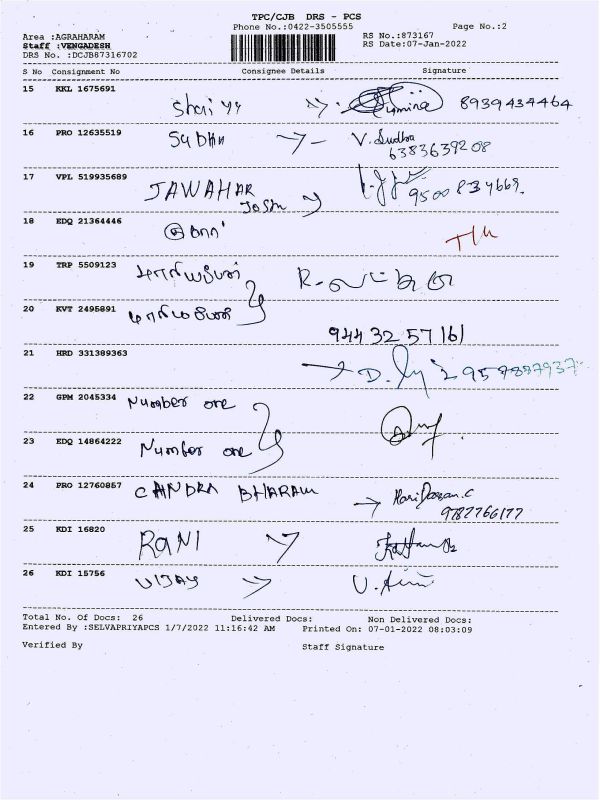 TPC/CJB DRS - PCS
Phone No.:0422-3505555 Page No.:2
Area :AGRAHARAM RS No.:873167
Staff :VENGADESH RS Date:07-Jan-2022
DRS No. :DCJB87316702
S No Consignment No Consignee Details Signature
15 KKL 1675691
8939434464
16 PRO 12635519
SUDHA V. Sudha
6383639208
17 VPL 519935689
JAWAHAR 9500834669.
18 EDQ 21364446
19 TRP 5509123
20 KVT 2495891
944 32 57 161
21 HRD 331389363
22 GPM 2045334 Number one
23 EDQ 14864222 Number one
24 PRO 12760857 CANDRA BHARAM
9787766177
25 KDI 16820
RANI
26 KDI 15756 VIJAY
Total No. Of Docs: 26 Delivered Docs: Non Delivered Docs:
Entered By :SELVAPRIYAPCS 1/7/2022 11:16:42 AM Printed On: 07-01-2022 08:03:09
Verified By Staff Signature